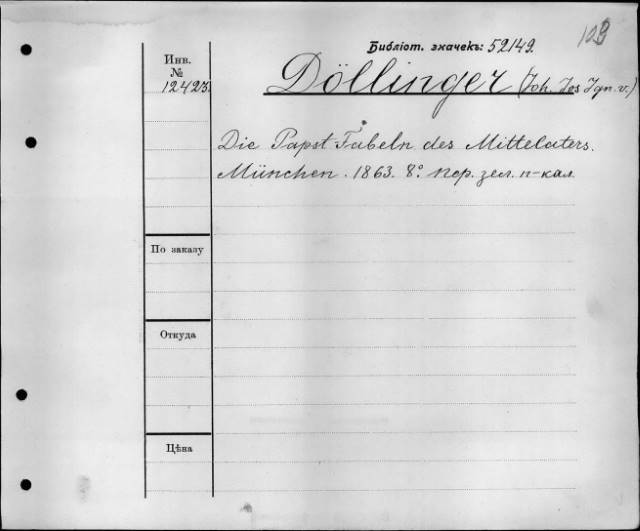 109
Библіот. значекъ: 52149.
Инв.
№
12423.
Döllinger (Joh. Jos Ign. v.)
Die Papst Fabeln des Mittelaters.
München. 1863. 8° пор. зел. п-кал
По заказу
Откуда
Цѣна